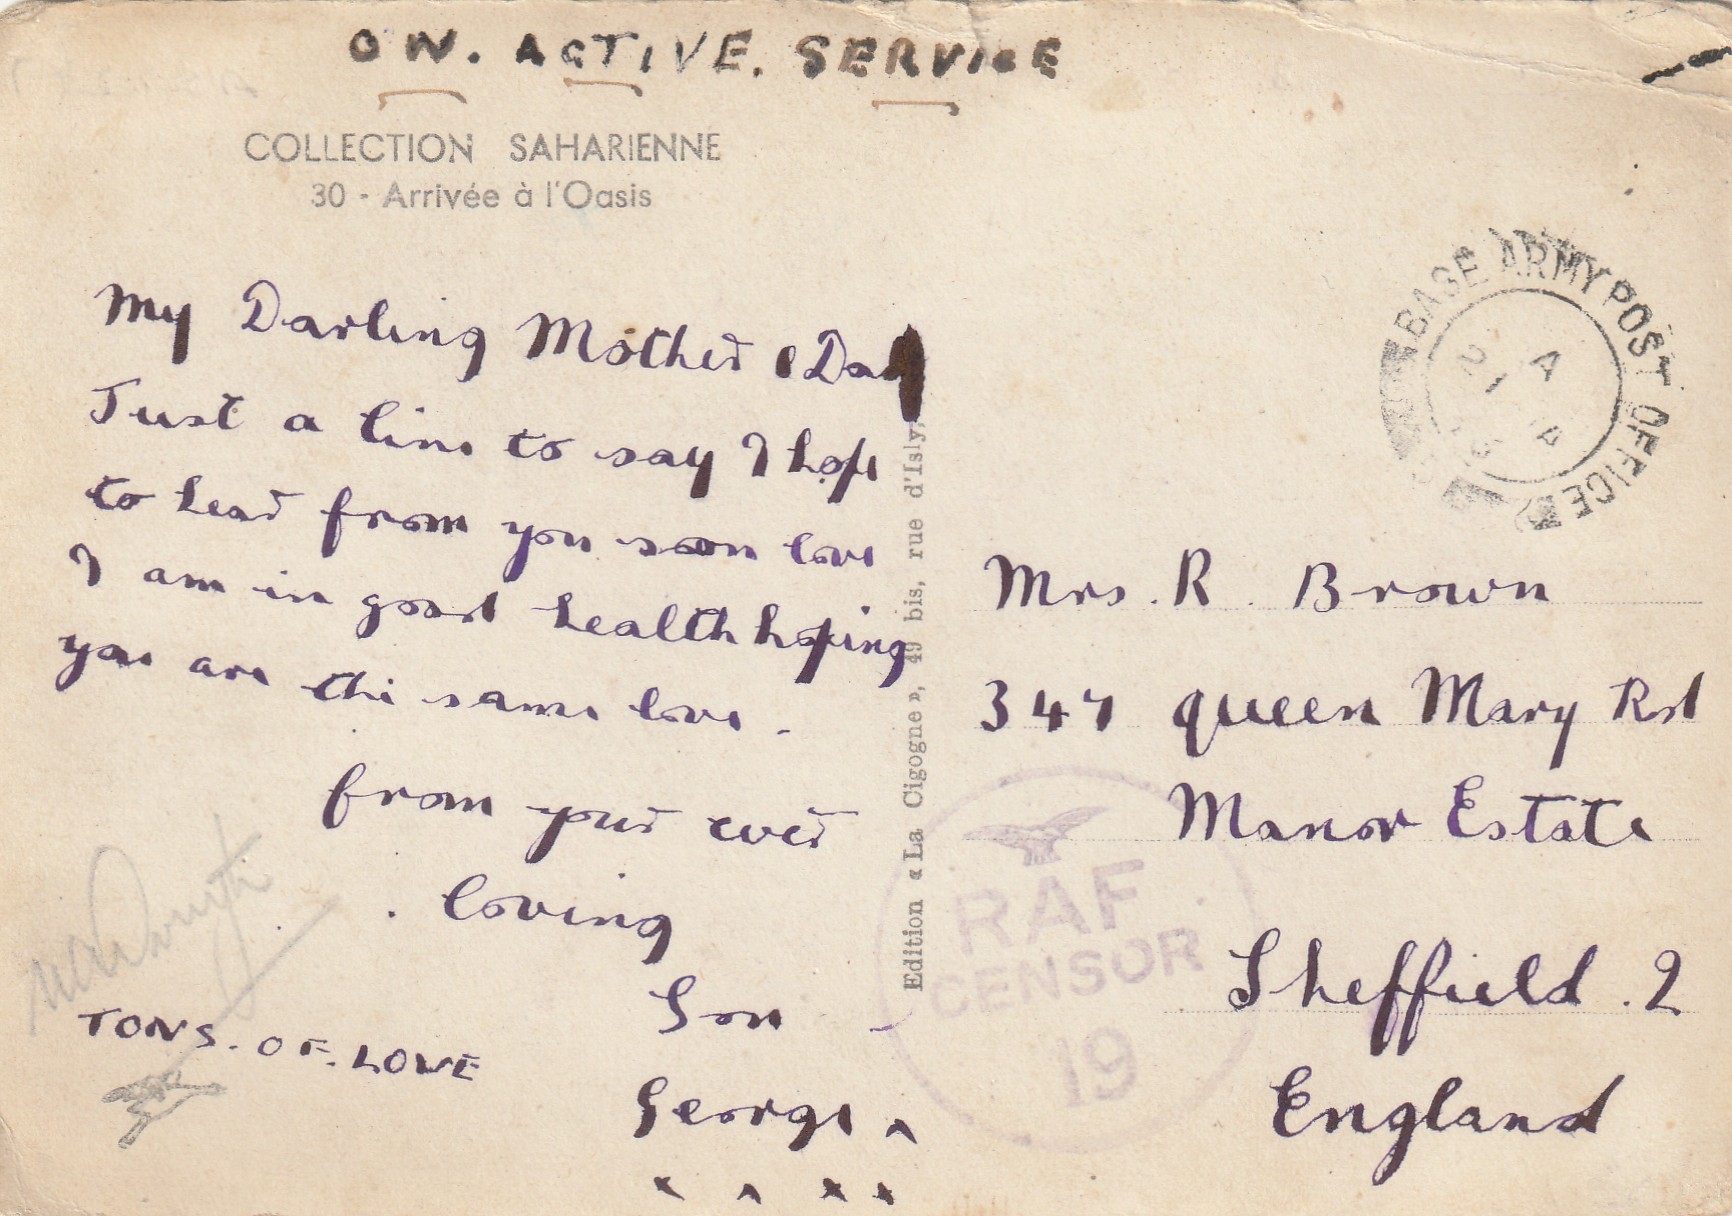 ON. ACTIVE. SERVICE
COLLECTION SAHARIENNE
30 - Arrivée à l'Oasis
My Darling Mother & Dad
Just a line to say I hope
to hear from you soon love
I am in good health hoping
you are the same love.
from your ever
loving
Son
George
TONS. OF. LOVE
x x x x
Edition « La Cigogne », 49 bis, rue d'Isly,
BASE ARMY POST OFFICE
A
21
Mrs. R. Brown
347 queen Mary Rd
Manor Estate
Sheffield. 2
England
RAF
CENSOR
19